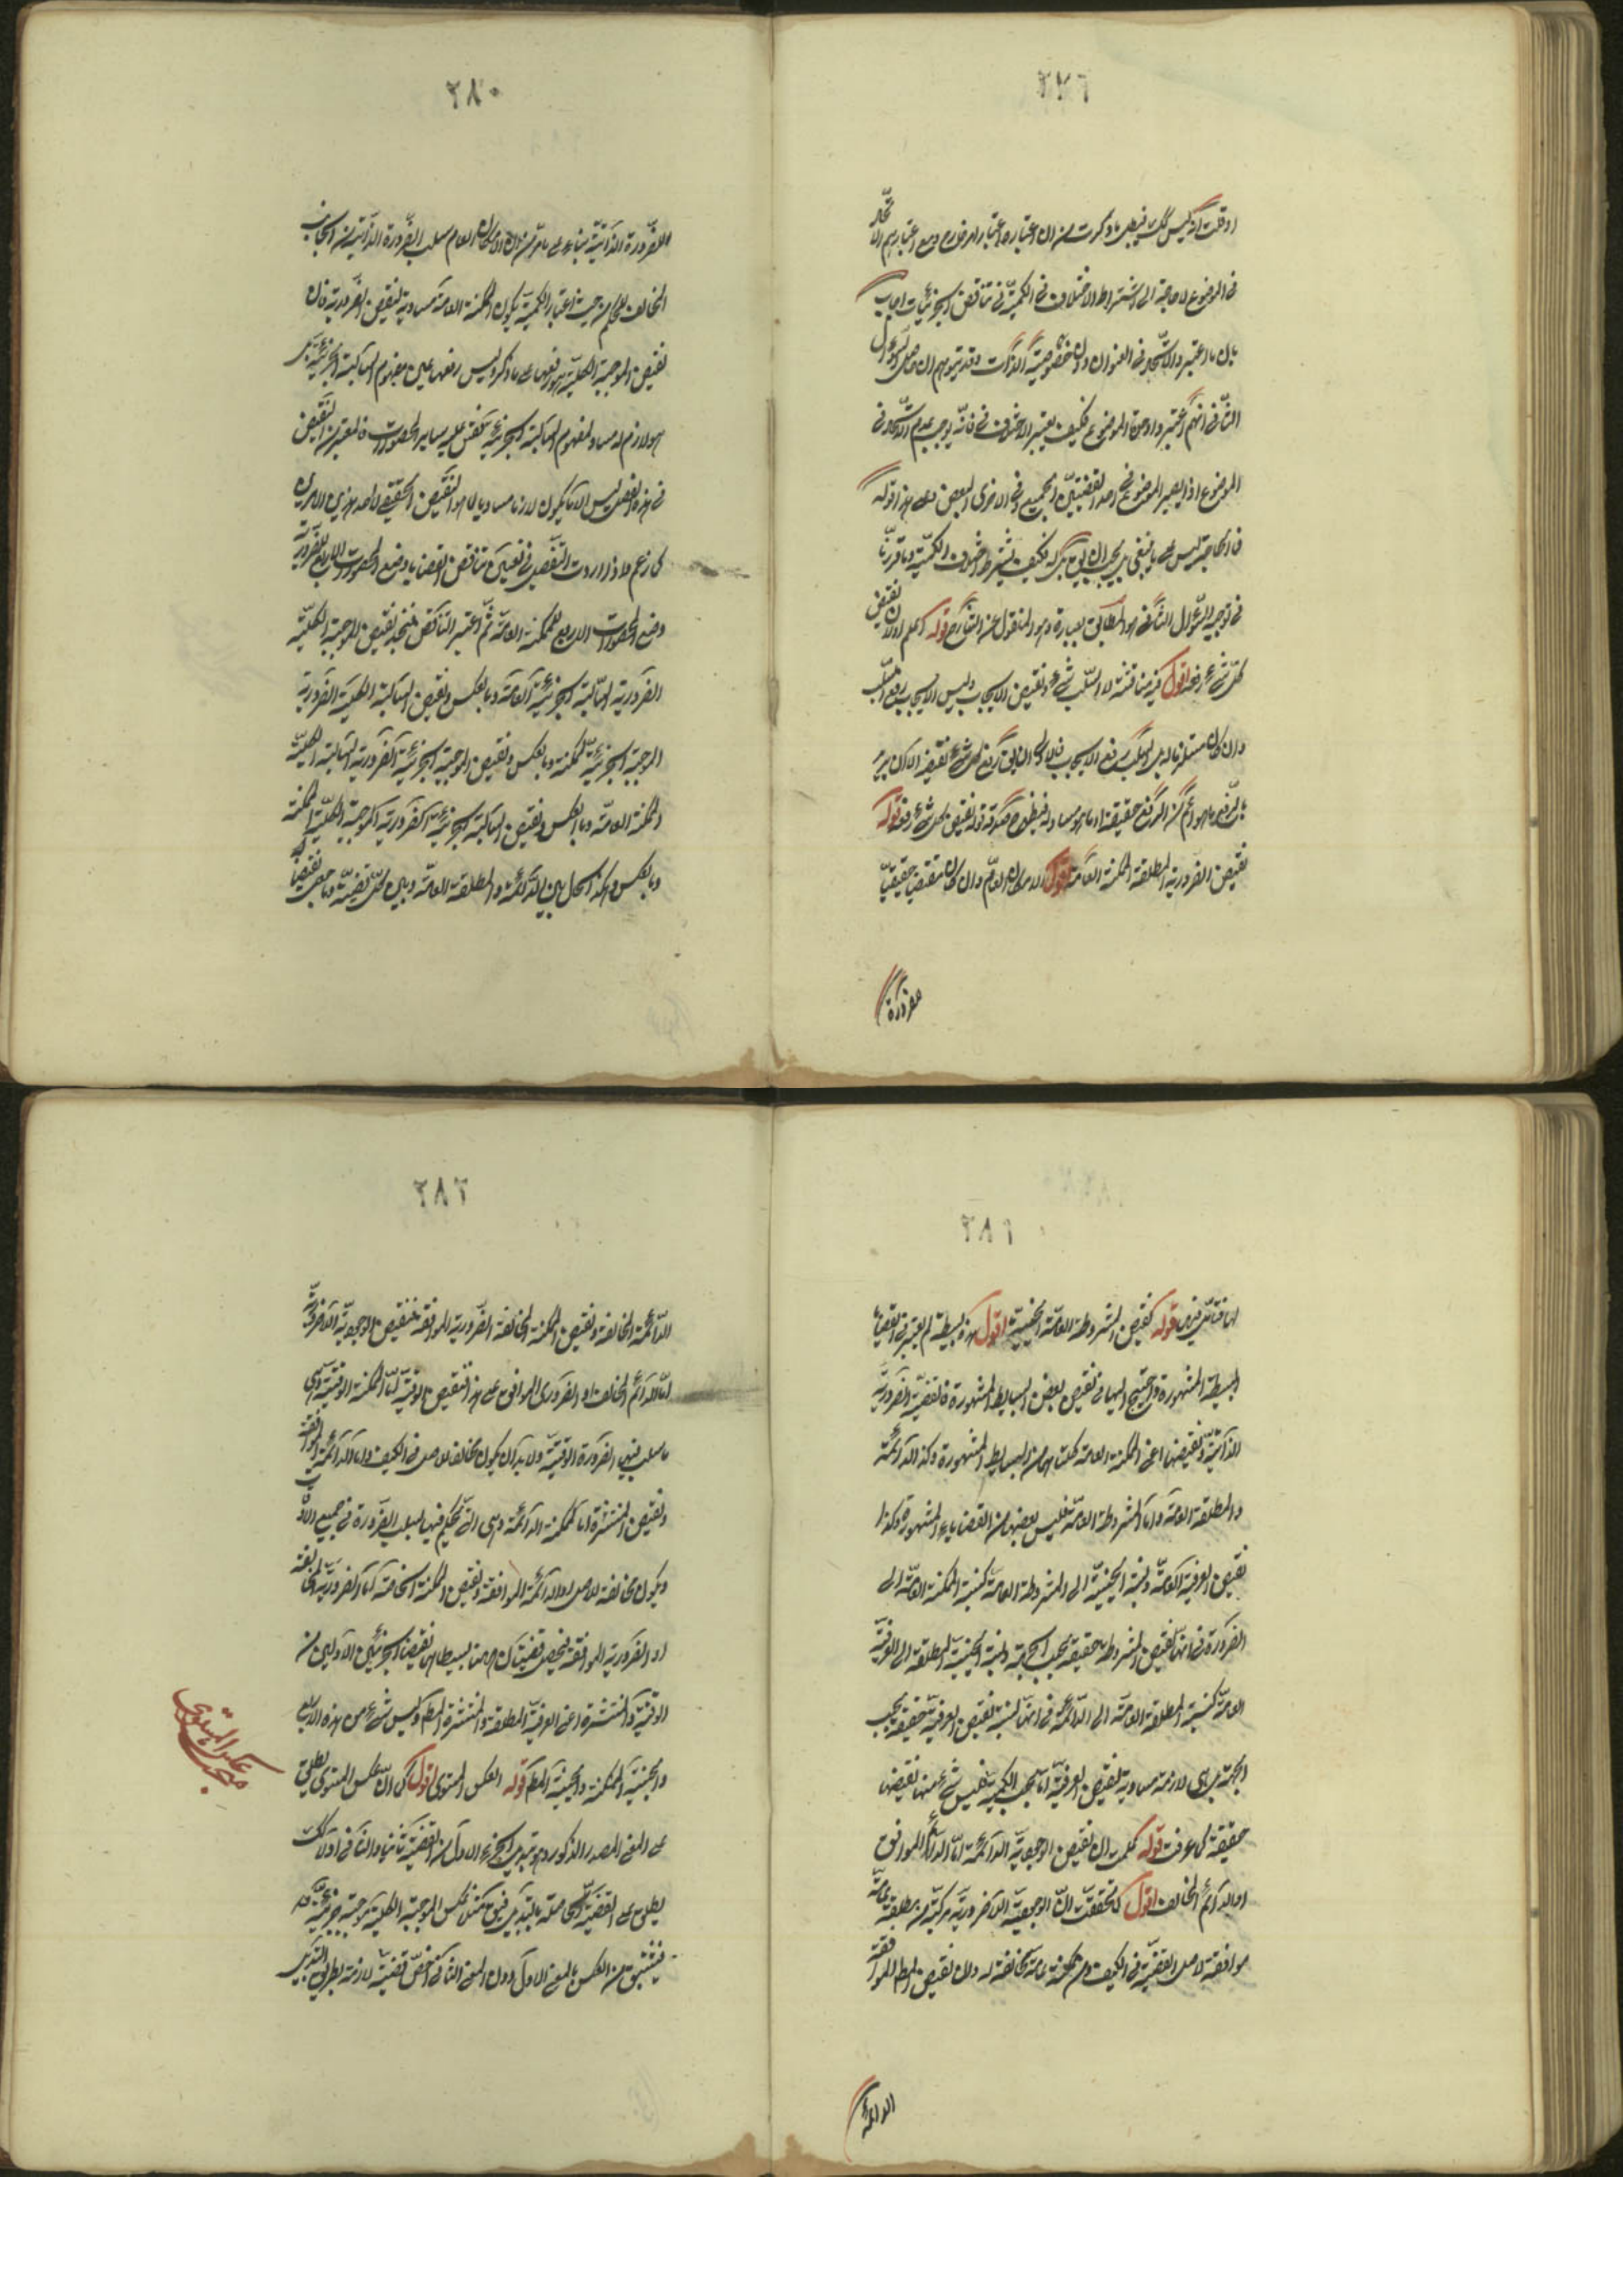 ٢٧٩
او قلت اذ ليس كك فيبطل ما ذكرت من ان اعتباره اعتبار امر خارج ومع اعتبارهم الاتحاد
فى الموضوع لا حاجة الى اشتراط الاختلاف فى الكمية فى تناقض الجزئيات اجاب
بان ما اعتبروا الاتحاد فى العنوان دون خصوصية الذات وقد يتوهم ان حاصل السؤال
الثانى انهم اعتبروا وحدة الموضوع فكيف يعتبر الاختلاف فى فانه يوجب عدم الاتحاد فى
الموضوع اذ يصير الموضوع فى احد القضيتين الجميع وفى الاخرى البعض وعلى هذا قوله
فلا حاجة ليس على ما ينبغى بل يجب ان يقال فكيف يشترط اختلاف الكمية وما قررنا
فى توجيه السؤال الثانى هو المطابق لعبارة وهو المنقول عن الشارح قوله اعلم اولا ان نقيض
كل شئ رفعه اقول فيه مناقشة لان السلب شئ ونقيض الايجاب وليس الايجاب رفع السلب
وان كان مستلزما له بل السلب رفع الايجاب فالاولى ان يقال رفع كل شئ نقيضه الا ان يريد
بالرفع ما هو اعم من الرفع حقيقة او ما هو مساو له فيظهر صدق قوله نقيض كل شئ رفعه قوله
نقيض الضرورية المطلقة الممكنة العامة اقول الامكان العام وان كان نقيضا حقيقيا
للضرورة
٢٨٠
للضرورة الذاتية بناء على ما مر من ان الامكان العام سلب الضرورة الذاتية من الجانب
المخالف للحكم من حيث اعتبار الكمية يكون الممكنة العامة مساوية لنقيض الضرورية فان
نقيض الموجبة الكلية هو رفعها على ما ذكر وليس رفعها عين مفهوم السالبة الجزئية بل
هو لازم له مساو لمفهوم السالبة الجزئية فقس عليه ساير المحصورات فالمعتبر من النقيض
فى هذه الفصل ليس الا ما يكون لازما مساويا لما هو النقيض الحقيقى لاحد هذين الامرين
كما زعم واذا اردت التفصيل فى تعيين تناقض القضايا وضع المحصورات الاربع للضرورية
وضع المحصورات الاربع للممكنة العامة ثم اعتبر التناقض فتجد نقيض الموجبة الكلية
الضرورية السالبة الجزئية العامة وبالعكس ونقيض السالبة الكلية الضرورية
الموجبة الجزئية الممكنة وبالعكس ونقيض الموجبة الجزئية الضرورية السالبة الكلية
الممكنة العامة وبالعكس ونقيض السالبة الجزئية الضرورية الموجبة الكلية الممكنة
وبالعكس وهكذا الحال بين الدائمة والمطلقة العامة وبين كل قضية وما جعلت نقيضا
٢٨١
لها فتأمل قوله كنقيض المشروطة العامة الحينية اقول هذه بسيطة لم يعتبر فى القضايا
البسيطة المشهورة واحتيج اليها فى نقيض بعض البسايط المشهورة فالقضية الضرورية
الذاتية ونقيضها اعنى الممكنة العامة كلتاهما من البسايط المشهورة وكذا الدائمة
والمطلقة العامة واما المشروطة العامة فليس نقيضها من القضايا المشهورة وكذا
نقيض العرفية العامة ونسبة الحينية الى المشروطة العامة كنسبة الممكنة العامة الى
الضرورية فى انها نقيض المشروطة حقيقة بحسب الجهة ونسبة الحينية المطلقة الى العرفية
العامة كنسبة المطلقة العامة الى الدائمة فى انها ليست نقيض العرفية حقيقة بحسب
الجهة بل هى لازمة مساوية لنقيض العرفية اما بحسب الكمية فليس شئ منها نقيضها
حقيقة كما عرفت قوله كما ان نقيض الوجودية الدائمة اما الدائم الموافق
او الدائم المخالف اقول لما تحققت ان الوجودية اللاضرورية مركبة من مطلقة عامة
موافقة لاصل القضية فى الكيف ومن ممكنة عامة مخالفة له وان نقيض المطلقة الموافقة
الدائمة
٢٨٢
الدائمة المخالفة ونقيض الممكنة المخالفة الضرورية الموافقة فنقيض الوجودية اللاضرورية
اما الدائم المخالف او الضرورى الموافق على هذا فنقيض الوقتية اما الممكنة الوقتية وهى
ما سلب فيها الضرورة الوقتية ولا بد ان يكون مخالفا للاصل فى الكيف واما الدائمة الموافقة
ونقيض المنتشرة اما الممكنة الدائمة وهى التى يحكم فيها بسلب الضرورة فى جميع الاوقات
ويكون مخالفة للاصل او الدائمة الموافقة ونقيض الممكنة الخاصة اما الضرورية المخالفة
او الضرورية الموافقة فيحصل قضيتان هما بسيطان نقيضا الجزئين الاولين من
الوقتية والمنتشرة اعنى العرفية المطلقة والمنتشرة المطلقة وليس شئ من هذه الاربع
والحينية الممكنة والحينية المطلقة قوله العكس المستوى اقول كما ان العكس المستوى يطلق
على المعنى المصدرى المذكور وهو تبديل الجزء الاول من القضية ثانيا والثانى اولا كك
يطلق على القضية الحاصلة بالتبديل فيقال مثلا عكس الموجبة الكلية موجبة جزئية
فيشتق من العكس بالمعنى الاول دون المعنى الثانى اخص قضية لازمة بطريق التبديل
مبحث عكس المستوى